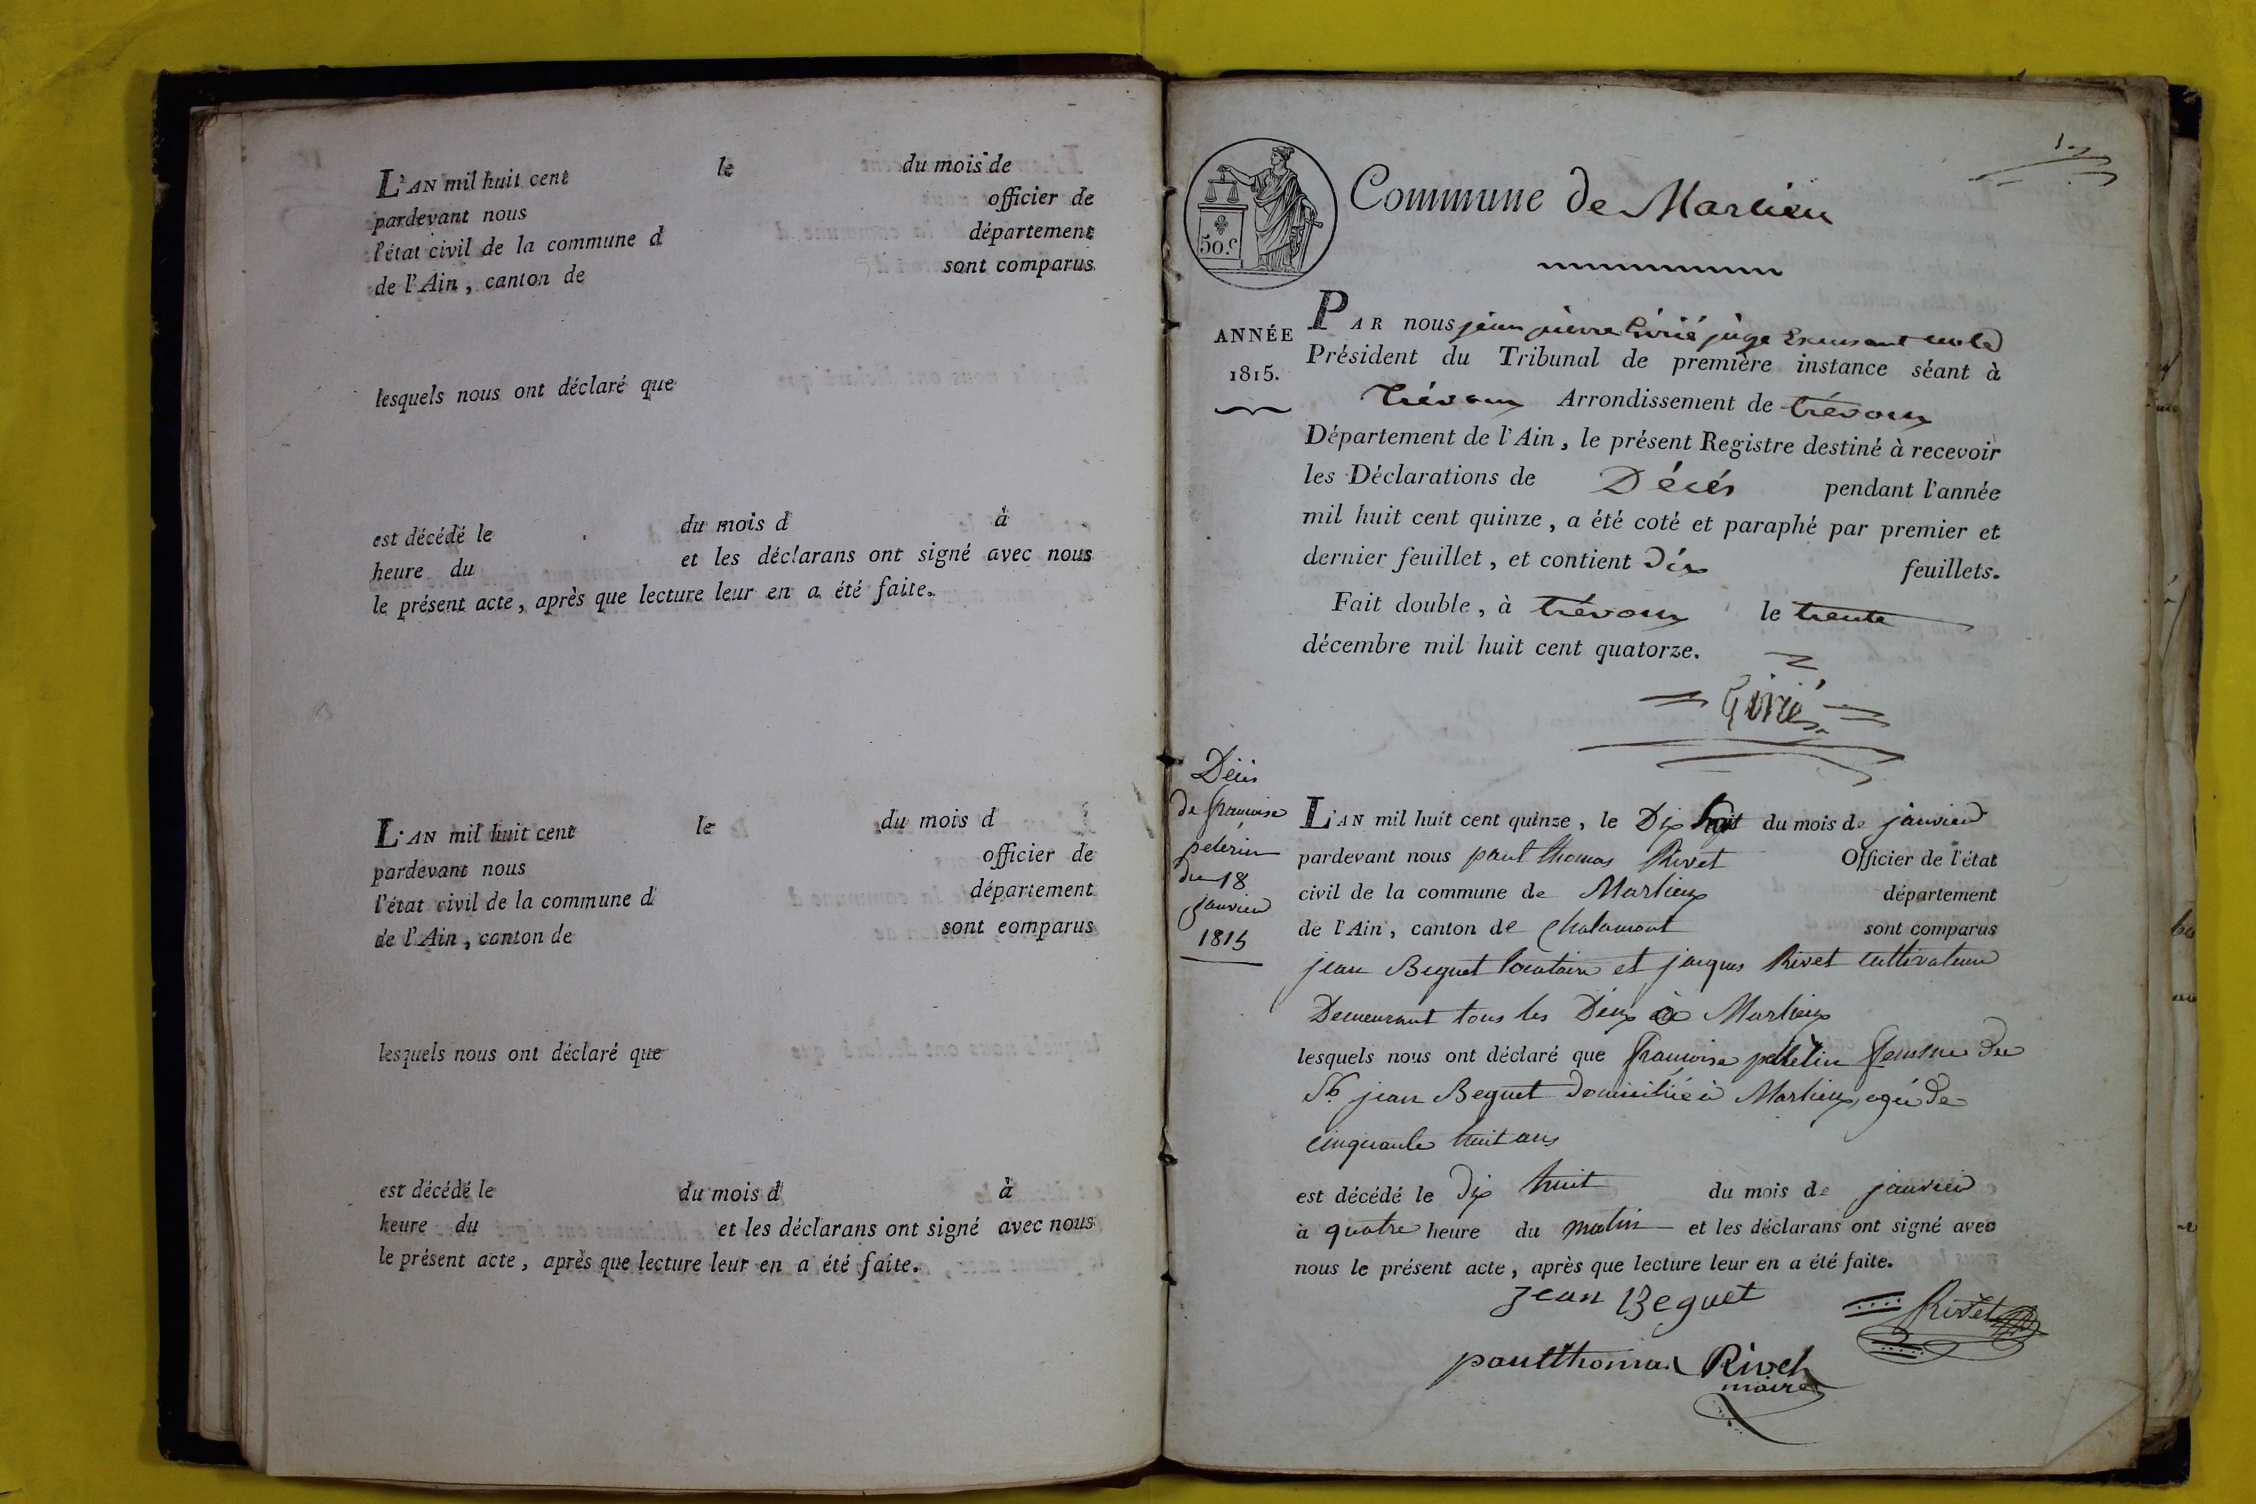 L'AN mil huit cent le du mois de
pardevant nous officier de
l'état civil de la commune d département
de l'Ain, canton de sont comparus
lesquels nous ont déclaré que
est décédé le du mois d à
heure du et les déclarans ont signé avec nous
le présent acte, après que lecture leur en a été faite.
L'AN mil huit cent le du mois d
pardevant nous officier de
l'état civil de la commune d département
de l'Ain, canton de sont comparus
lesquels nous ont déclaré que
est décédé le du mois d à
heure du et les déclarans ont signé avec nous
le présent acte, après que lecture leur en a été faite.
50.c
Commune de Marlieu
ANNÉE
1815.
PAR nous jean pierre juge
Président du Tribunal de première instance séant à
trévoux Arrondissement de trévoux
Département de l'Ain, le présent Registre destiné à recevoir
les Déclarations de Décés pendant l'année
mil huit cent quinze, a été coté et paraphé par premier et
dernier feuillet, et contient dix feuillets.
Fait double, à trévoux le trente
décembre mil huit cent quatorze.
Décis
de francoise
pelerin
du 18
janvier
1815
L'AN mil huit cent quinze, le Dix huit du mois de janvier
pardevant nous paul thomas Rivet Officier de l'état
civil de la commune de Marlieux département
de l'Ain, canton de Chalamont sont comparus
jean Beguet locataire et jacques Rivet cultivateur
Demeurant tous les Deux à Marlieux
lesquels nous ont déclaré que francoise pelerin femme du
Sr. jean Beguet domiciliée à Marlieux, agée de
cinquante huit ans
est décédé le dix huit du mois de janvier
à quatre heure du matin et les déclarans ont signé avec
nous le présent acte, après que lecture leur en a été faite.
jean Beguet
Rivet
paul thomas Rivet
maire